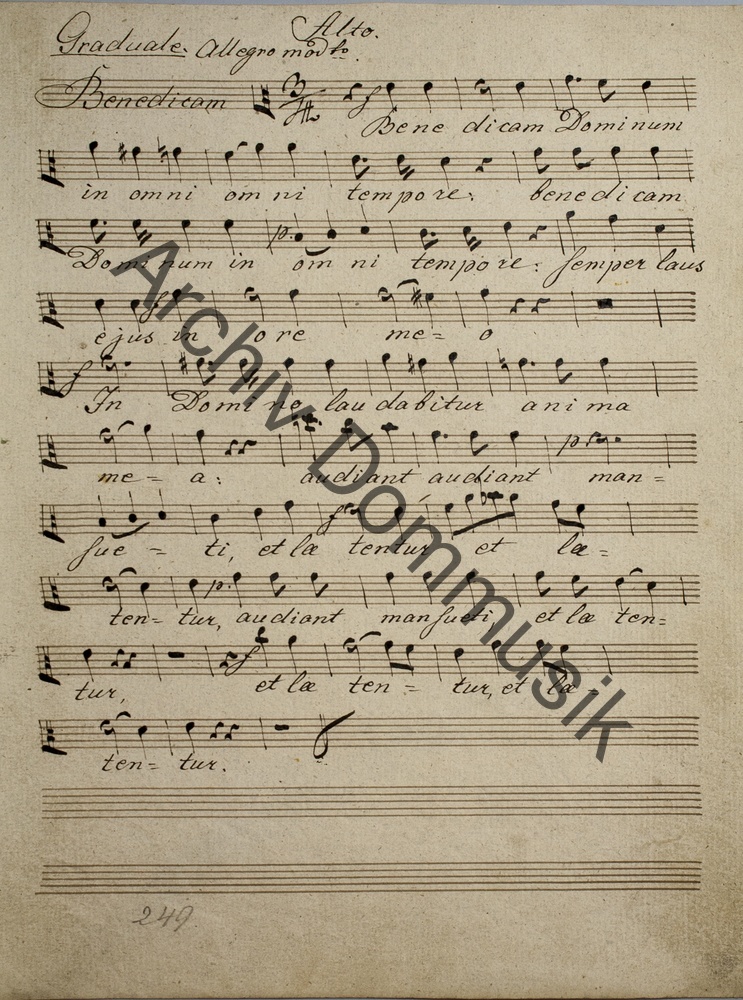 Alto.
Graduale. Allegro modto.
Benedicam
Bene dicam Dominum
in omni om ni tempore: benedicam
Dominum in om ni tempore: semper laus
ejus in ore me= o
In Domino laudabitur anima
me= a: audiant audiant man=
sue= ti, et læ tentur et læ=
ten= tur, audiant mansueti, et læ ten=
tur, et læ ten= tur, et læ=
ten= tur.
249
Archiv Dommusik